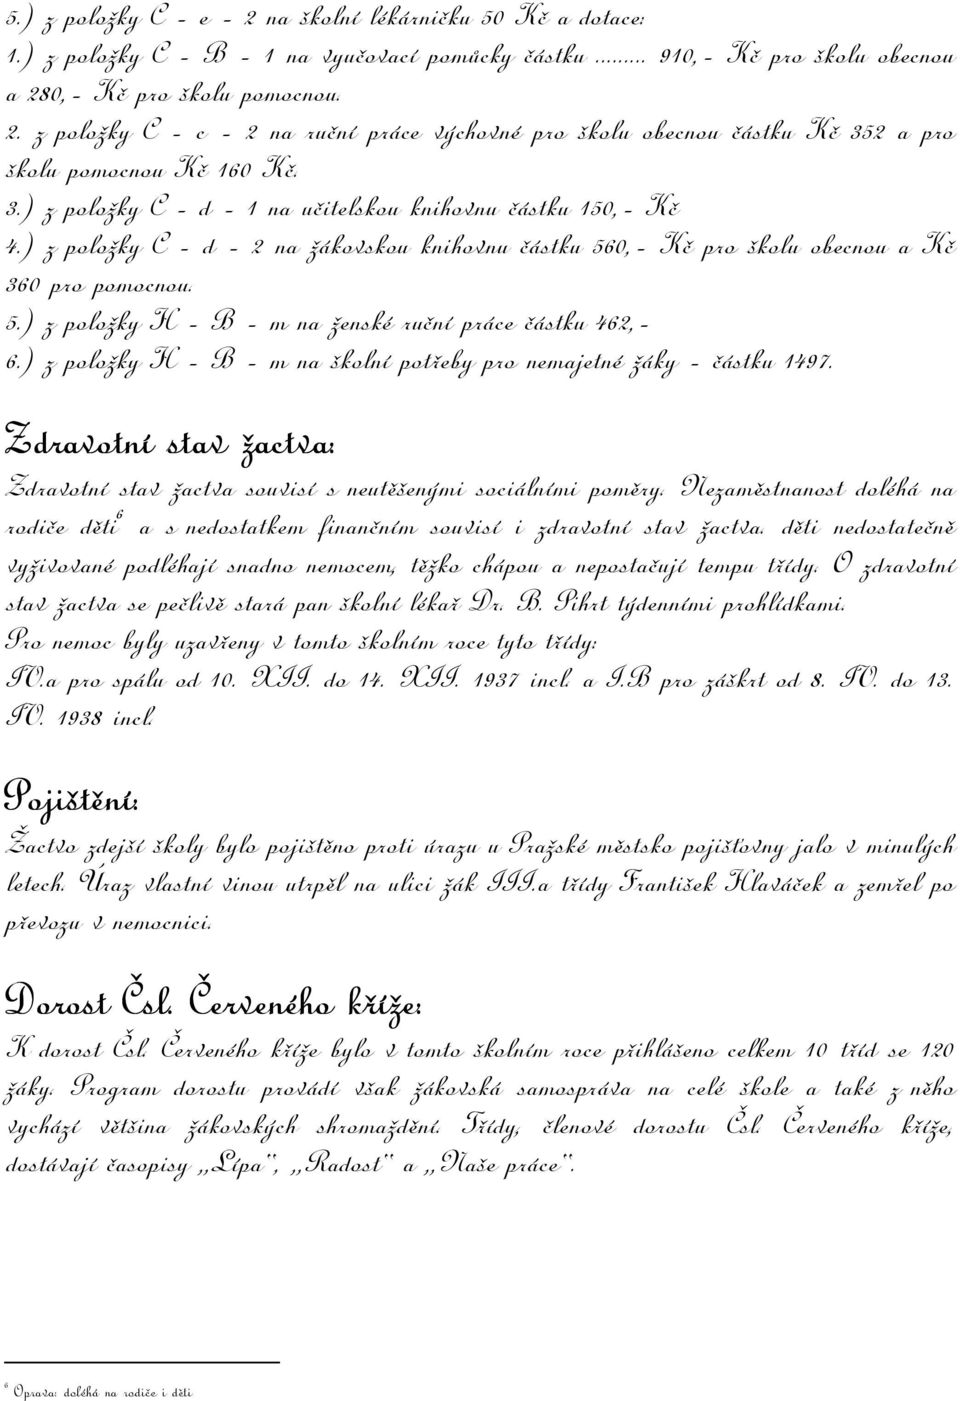 5.) z položky C - e - 2 na školní lékárničku 50 Kč a dotace:
1.) z položky C - B - 1 na vyučovací pomůcky částku ......... 910,- Kč pro školu obecnou
a 280,- Kč pro školu pomocnou.
2. z položky C - c - 2 na ruční práce výchovné pro školu obecnou částku Kč 352 a pro
školu pomocnou Kč 160 Kč.
3.) z položky C - d - 1 na učitelskou knihovnu částku 150,- Kč
4.) z položky C - d - 2 na žákovskou knihovnu částku 560,- Kč pro školu obecnou a Kč
360 pro pomocnou.
5.) z položky H - B - m na ženské ruční práce částku 462,-
6.) z položky H - B - m na školní potřeby pro nemajetné žáky - částku 1497.
Zdravotní stav žactva:
Zdravotní stav žactva souvisí s neutěšenými sociálními poměry. Nezaměstnanost doléhá na
rodiče děti⁶ a s nedostatkem finančním souvisí i zdravotní stav žactva. děti nedostatečně
vyživované podléhají snadno nemocem, těžko chápou a nepostačují tempu třídy. O zdravotní
stav žactva se pečlivě stará pan školní lékař Dr. B. Pihrt týdenními prohlídkami.
Pro nemoc byly uzavřeny v tomto školním roce tyto třídy:
IV.a pro spálu od 10. XII. do 14. XII. 1937 incl. a I.B pro záškrt od 8. IV. do 13.
IV. 1938 incl.
Pojištění:
Žactvo zdejší školy bylo pojištěno proti úrazu u Pražské městsko pojišťovny jalo v minulých
letech. Úraz vlastní vinou utrpěl na ulici žák III.a třídy František Hlaváček a zemřel po
převozu v nemocnici.
Dorost Čsl. Červeného kříže:
K dorost Čsl. Červeného kříže bylo v tomto školním roce přihlášeno celkem 10 tříd se 120
žáky. Program dorostu provádí však žákovská samospráva na celé škole a také z něho
vychází většina žákovských shromaždění. Třídy, členové dorostu Čsl. Červeného kříže,
dostávají časopisy „Lípa“, „Radost“ a „Naše práce“.
⁶ Oprava: doléhá na rodiče i děti